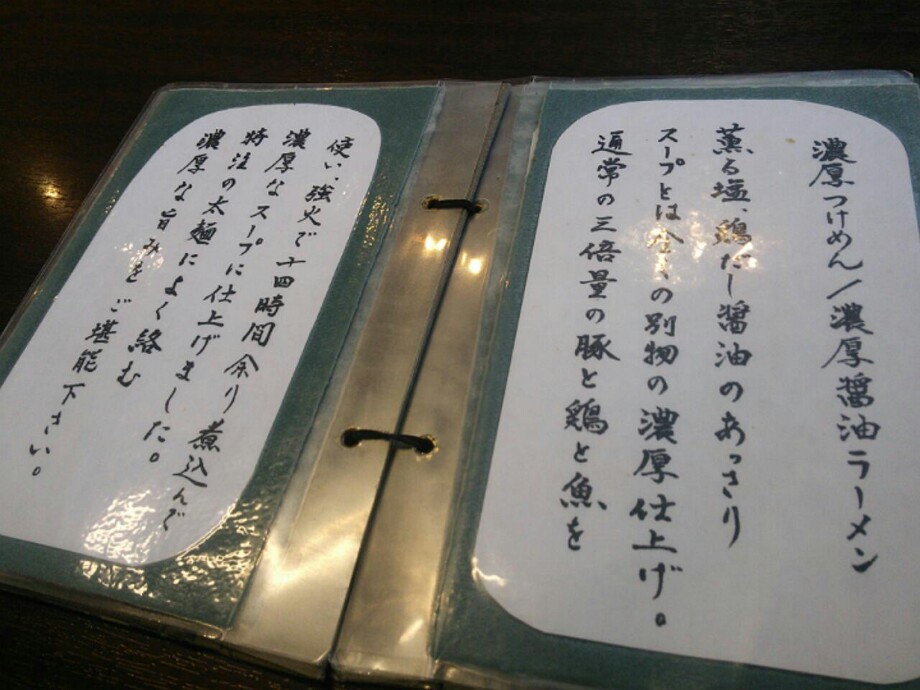 濃厚つけめん/濃厚醤油ラーメン
薫る塩、鶏だし醤油のあっさり
スープとは全くの別物の濃厚仕上げ。
通常の三倍量の豚と鶏と魚を
使い、強火で十四時間余り煮込んで
濃厚なスープに仕上げました。
特注の太麺によく絡む
濃厚な旨みをご堪能下さい。